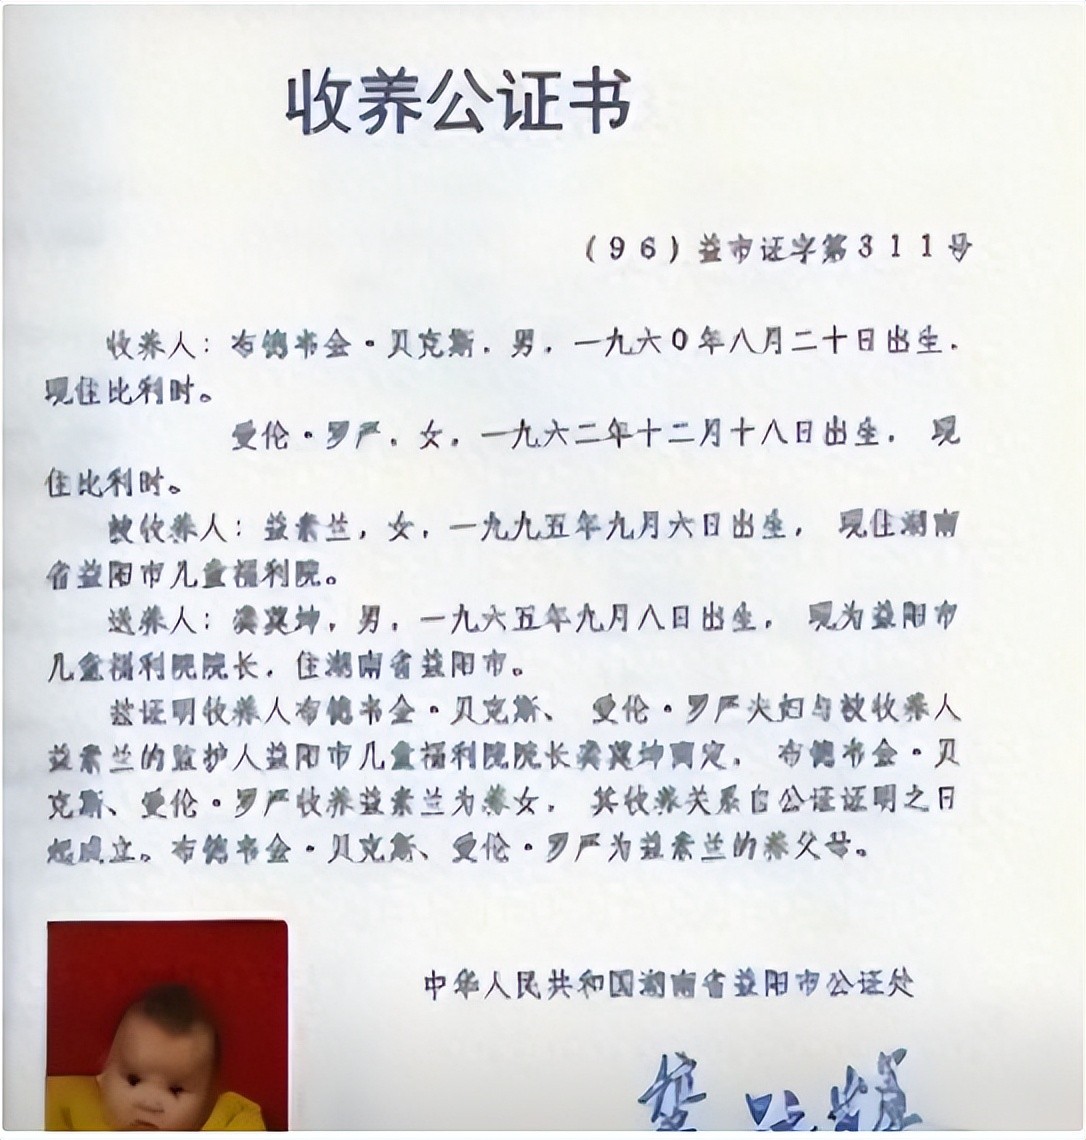 收养公证书
（96）益市证字第311号
收养人：布鲍韦金·贝克斯，男，一九六0年八月二十日出生，
现住比利时。
曼伦·罗严，女，一九六二年十二月十八日出生， 现
住比利时。
被收养人：益素兰，女，一九九五年九月六日出生， 现住湖南
省益阳市儿童福利院。
送养人：龚冀坤，男，一九六五年九月八日出生， 现为益阳市
儿童福利院院长，住湖南省益阳市。
兹证明收养人布鲍韦金·贝克斯、 曼伦·罗严夫妇与被收养人
益素兰的监护人益阳市儿童福利院院长龚冀坤商定， 布鲍韦金·贝
克斯、曼伦·罗严收养益素兰为养女， 其收养关系自公证证明之日
起成立。布鲍韦金·贝克斯、曼伦·罗严为益素兰的养父母。
中华人民共和国湖南省益阳市公证处